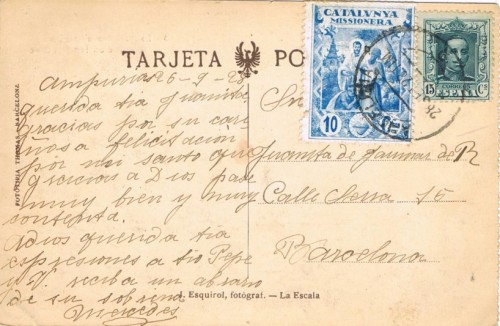 TARJETA PO
CATALUNYA
MISSIONERA
10
CORREOS
15 Cs
Ampurias 26-9-29
Querida tía Juanita
Gracias por su cari
ñosa felicitación
por mi santo que
gracias a Dios pasé
muy bien y muy
contenta.
Adios querida tia
expresiones a tio Pepe
y V. reciba un abrazo
de su sobrina
Mercedes
Sra
Juanita de Jaumar de R
Calle Serra 15
Barcelona
FOTOTIPIA THOMAS - BARCELONA
Esquirol, fotógraf. — La Escala